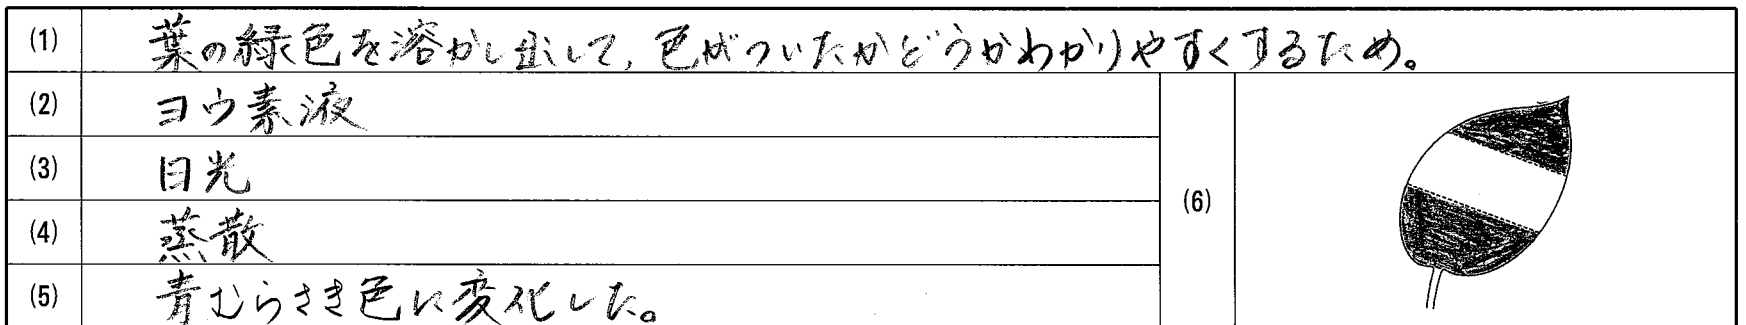 (1) 葉の緑色を溶かし出して、色がついたかどうかわかりやすくするため。
(2) ヨウ素液
(3) 日光
(4) 蒸散
(5) 青むらさき色に変化した。
(6)